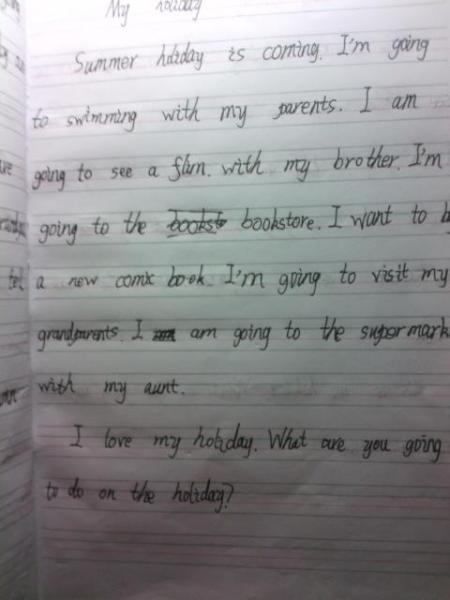 My holiday
Summer holiday is coming. I'm going
to swimming with my parents. I am
going to see a flim. with my brother. I'm
going to the bookstore. I want to b
a new comic book. I'm going to visit my
grandparents. I am going to the supermark
with my aunt.
I love my holiday. What are you going
to do on the holiday?